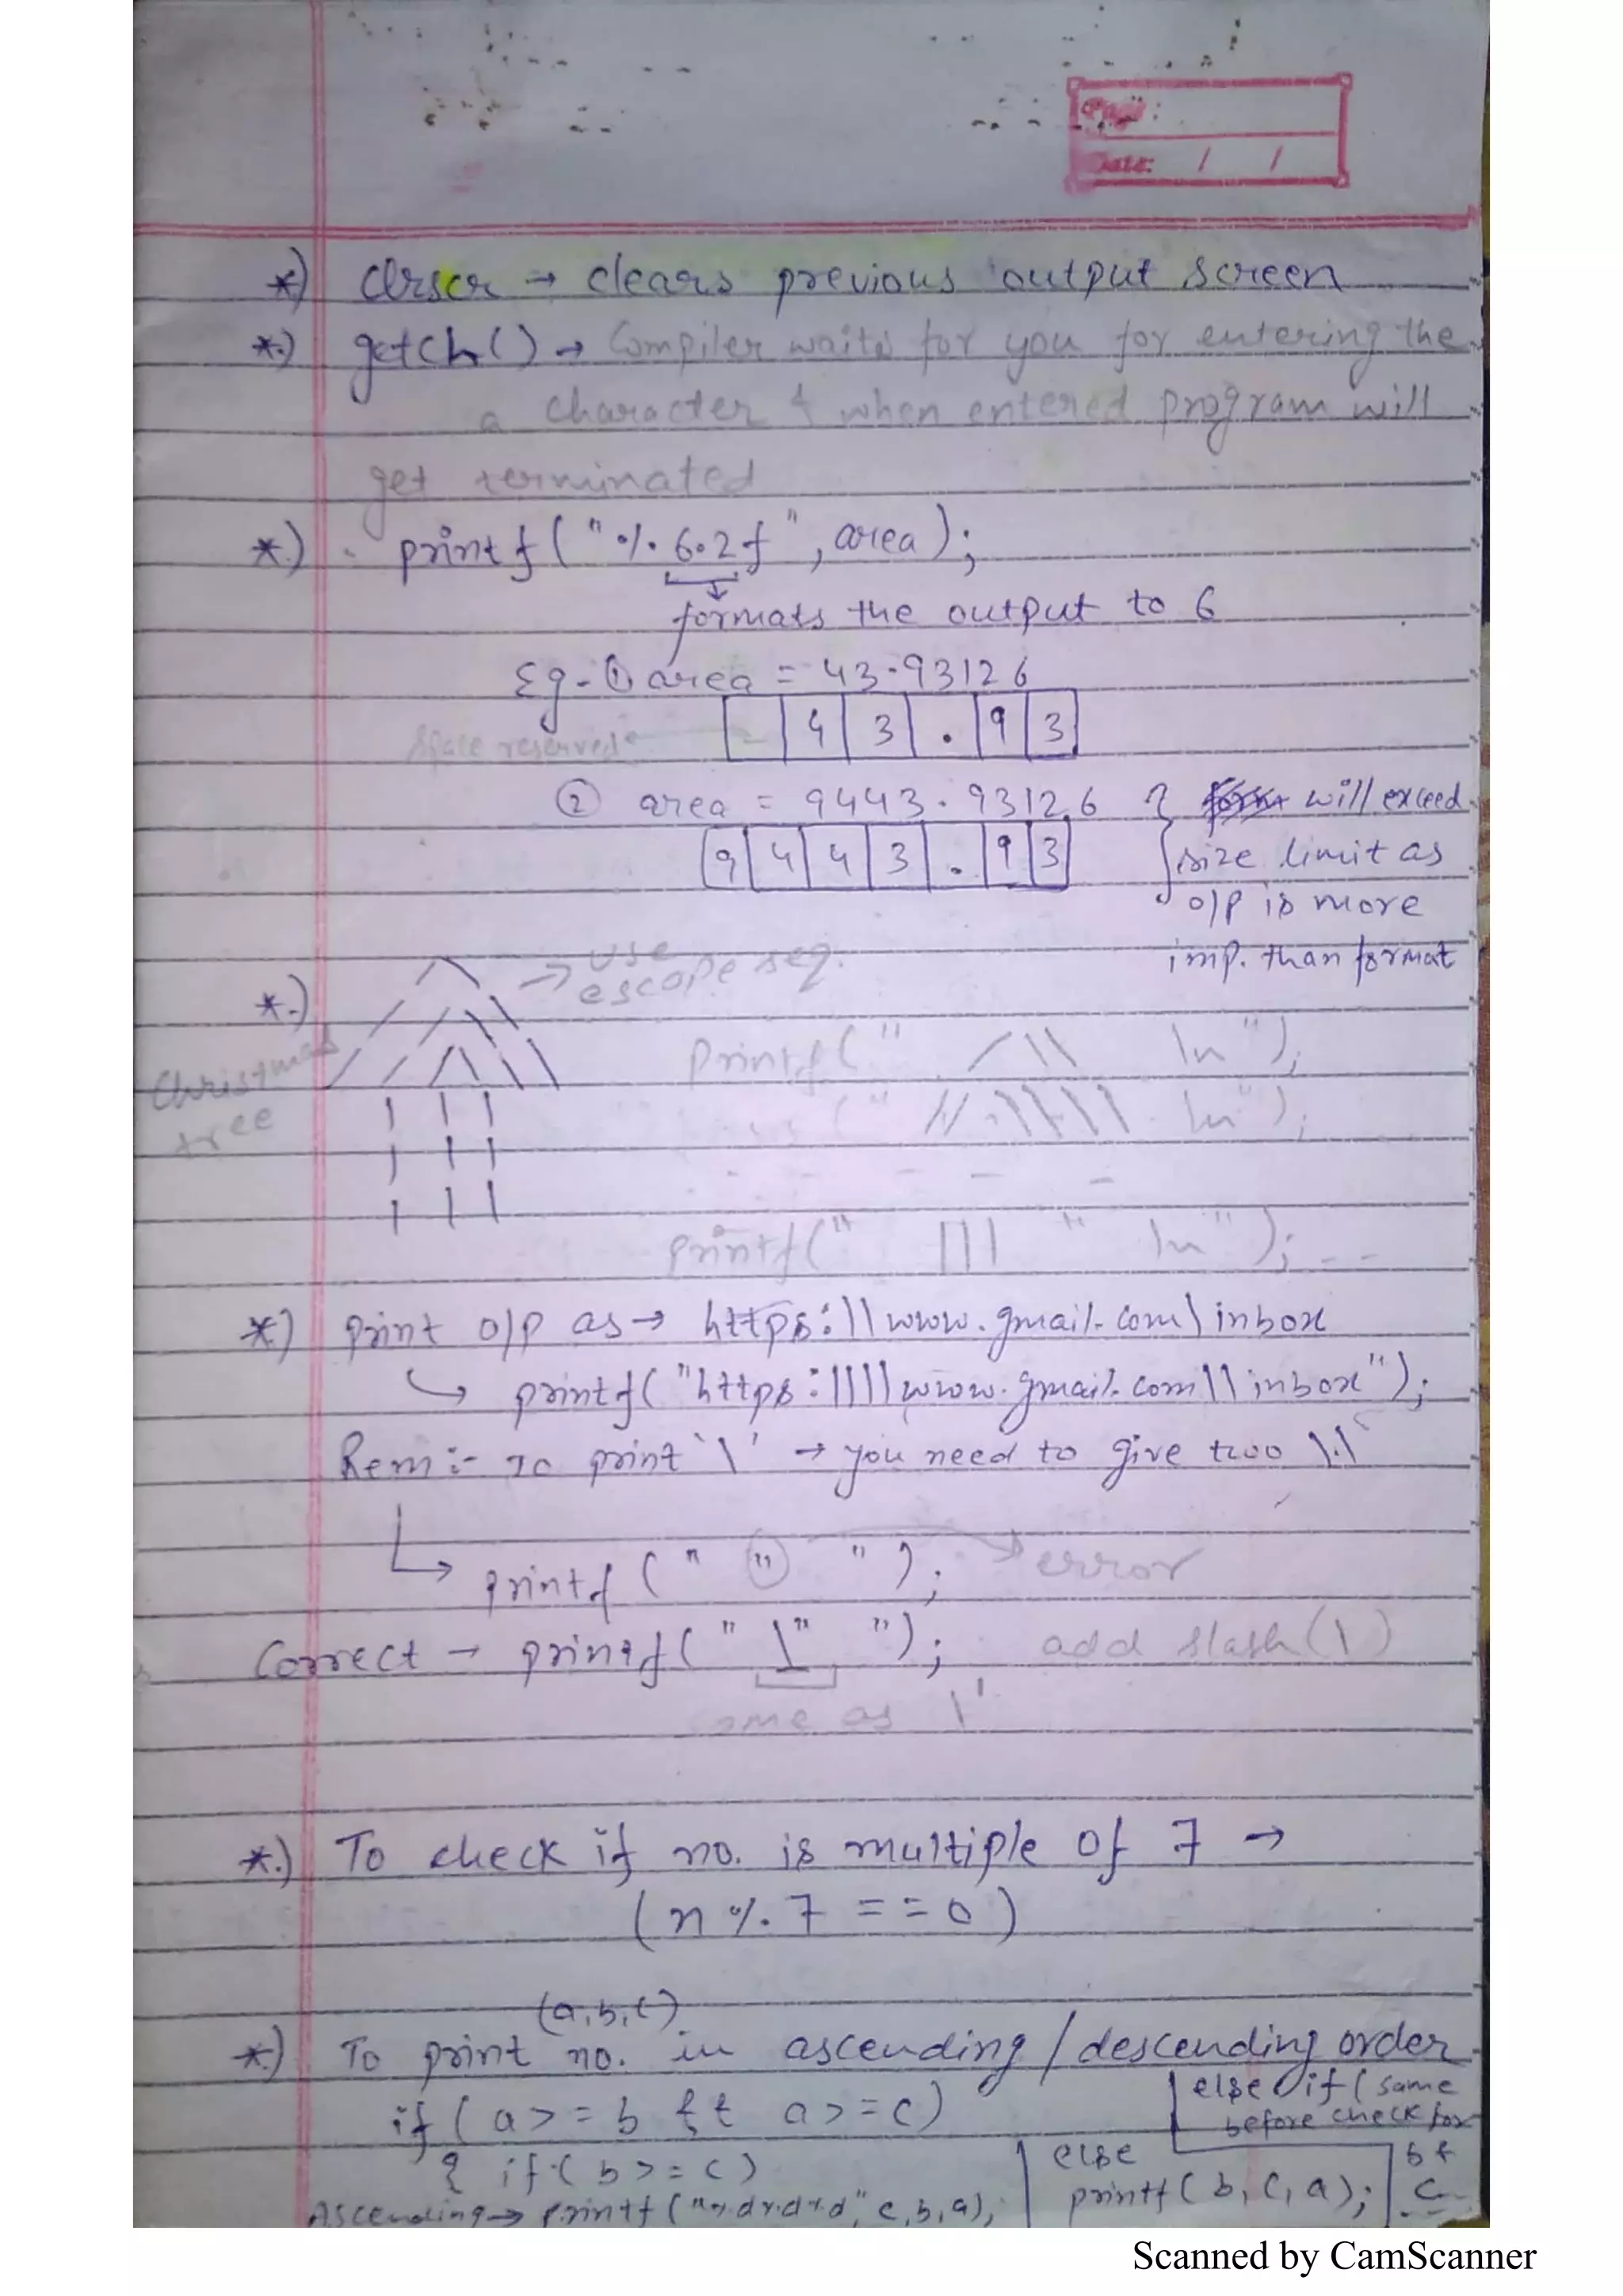 Page :
Date: / /
*) Clrscr → clears previous output screen
*.) getch() → Compiler waits for you for entering the
a character & when entered program will
get terminated
*.) printf("%6.2f", area);
formats the output to 6
Eg- ① area = 43.93126
space reserved 4 3 . 9 3
② area = 9443.93126 } will exceed
9 4 4 3 . 9 3 size limit as
o/p is more
imp. than format
*.) → use escape seq.
Christmas tree
printf(" /\\ \n");
(" //\\\\\\ \n");
printf(" ||| " \n");
*) print o/p as → https:\\www.gmail.com\inbox
↳ printf("https:\\\\www.gmail.com\\inbox");
Rem :- To print '\' → you need to give two \\
↳ printf (" " "); → error
Correct → printf(" \" "); add slash(\)
same as \'
*.) To check if no. is multiple of 7 →
(n % 7 == 0)
(a,b,c)
*) To print no. in ascending / descending order
if ( a >= b && a >= c) else if ( same
before check for
b &
c
{ if ( b >= c) else
Ascending → printf ("%d%d%d", c, b, a); printf ( b, c, a);
Scanned by CamScanner